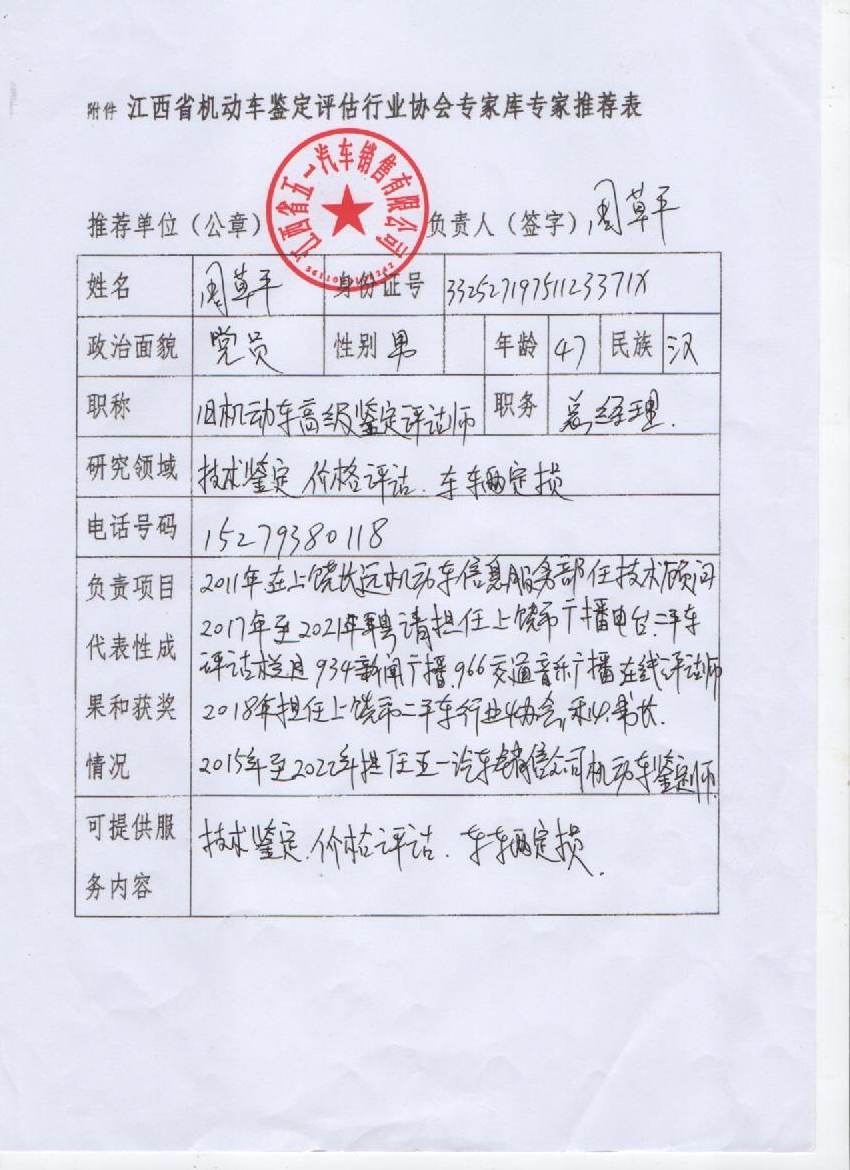 附件 江西省机动车鉴定评估行业协会专家库专家推荐表
江西省五一汽车销售有限公司
推荐单位（公章） 负责人（签字）周草平
姓名 周草平 身份证号 33252719751123371X
政治面貌 党员 性别 男 年龄 47 民族 汉
职称 旧机动车高级鉴定评估师 职务 总经理.
研究领域 技术鉴定 价格评估. 车车辆定损
电话号码 15279380118
负责项目 2011年在上饶长运机动车信息服务部任技术顾问
代表性成 2017年至2021年聘请担任上饶市广播电台二手车
评估栏目934新闻广播.966交通音乐广播在线评估师
果和获奖 2018年担任上饶市二手车行业协会,秘书长.
情况 2015年至2022年担任五一汽车销售公司机动车鉴定师.
可提供服 技术鉴定.价格评估.车车辆定损.
务内容